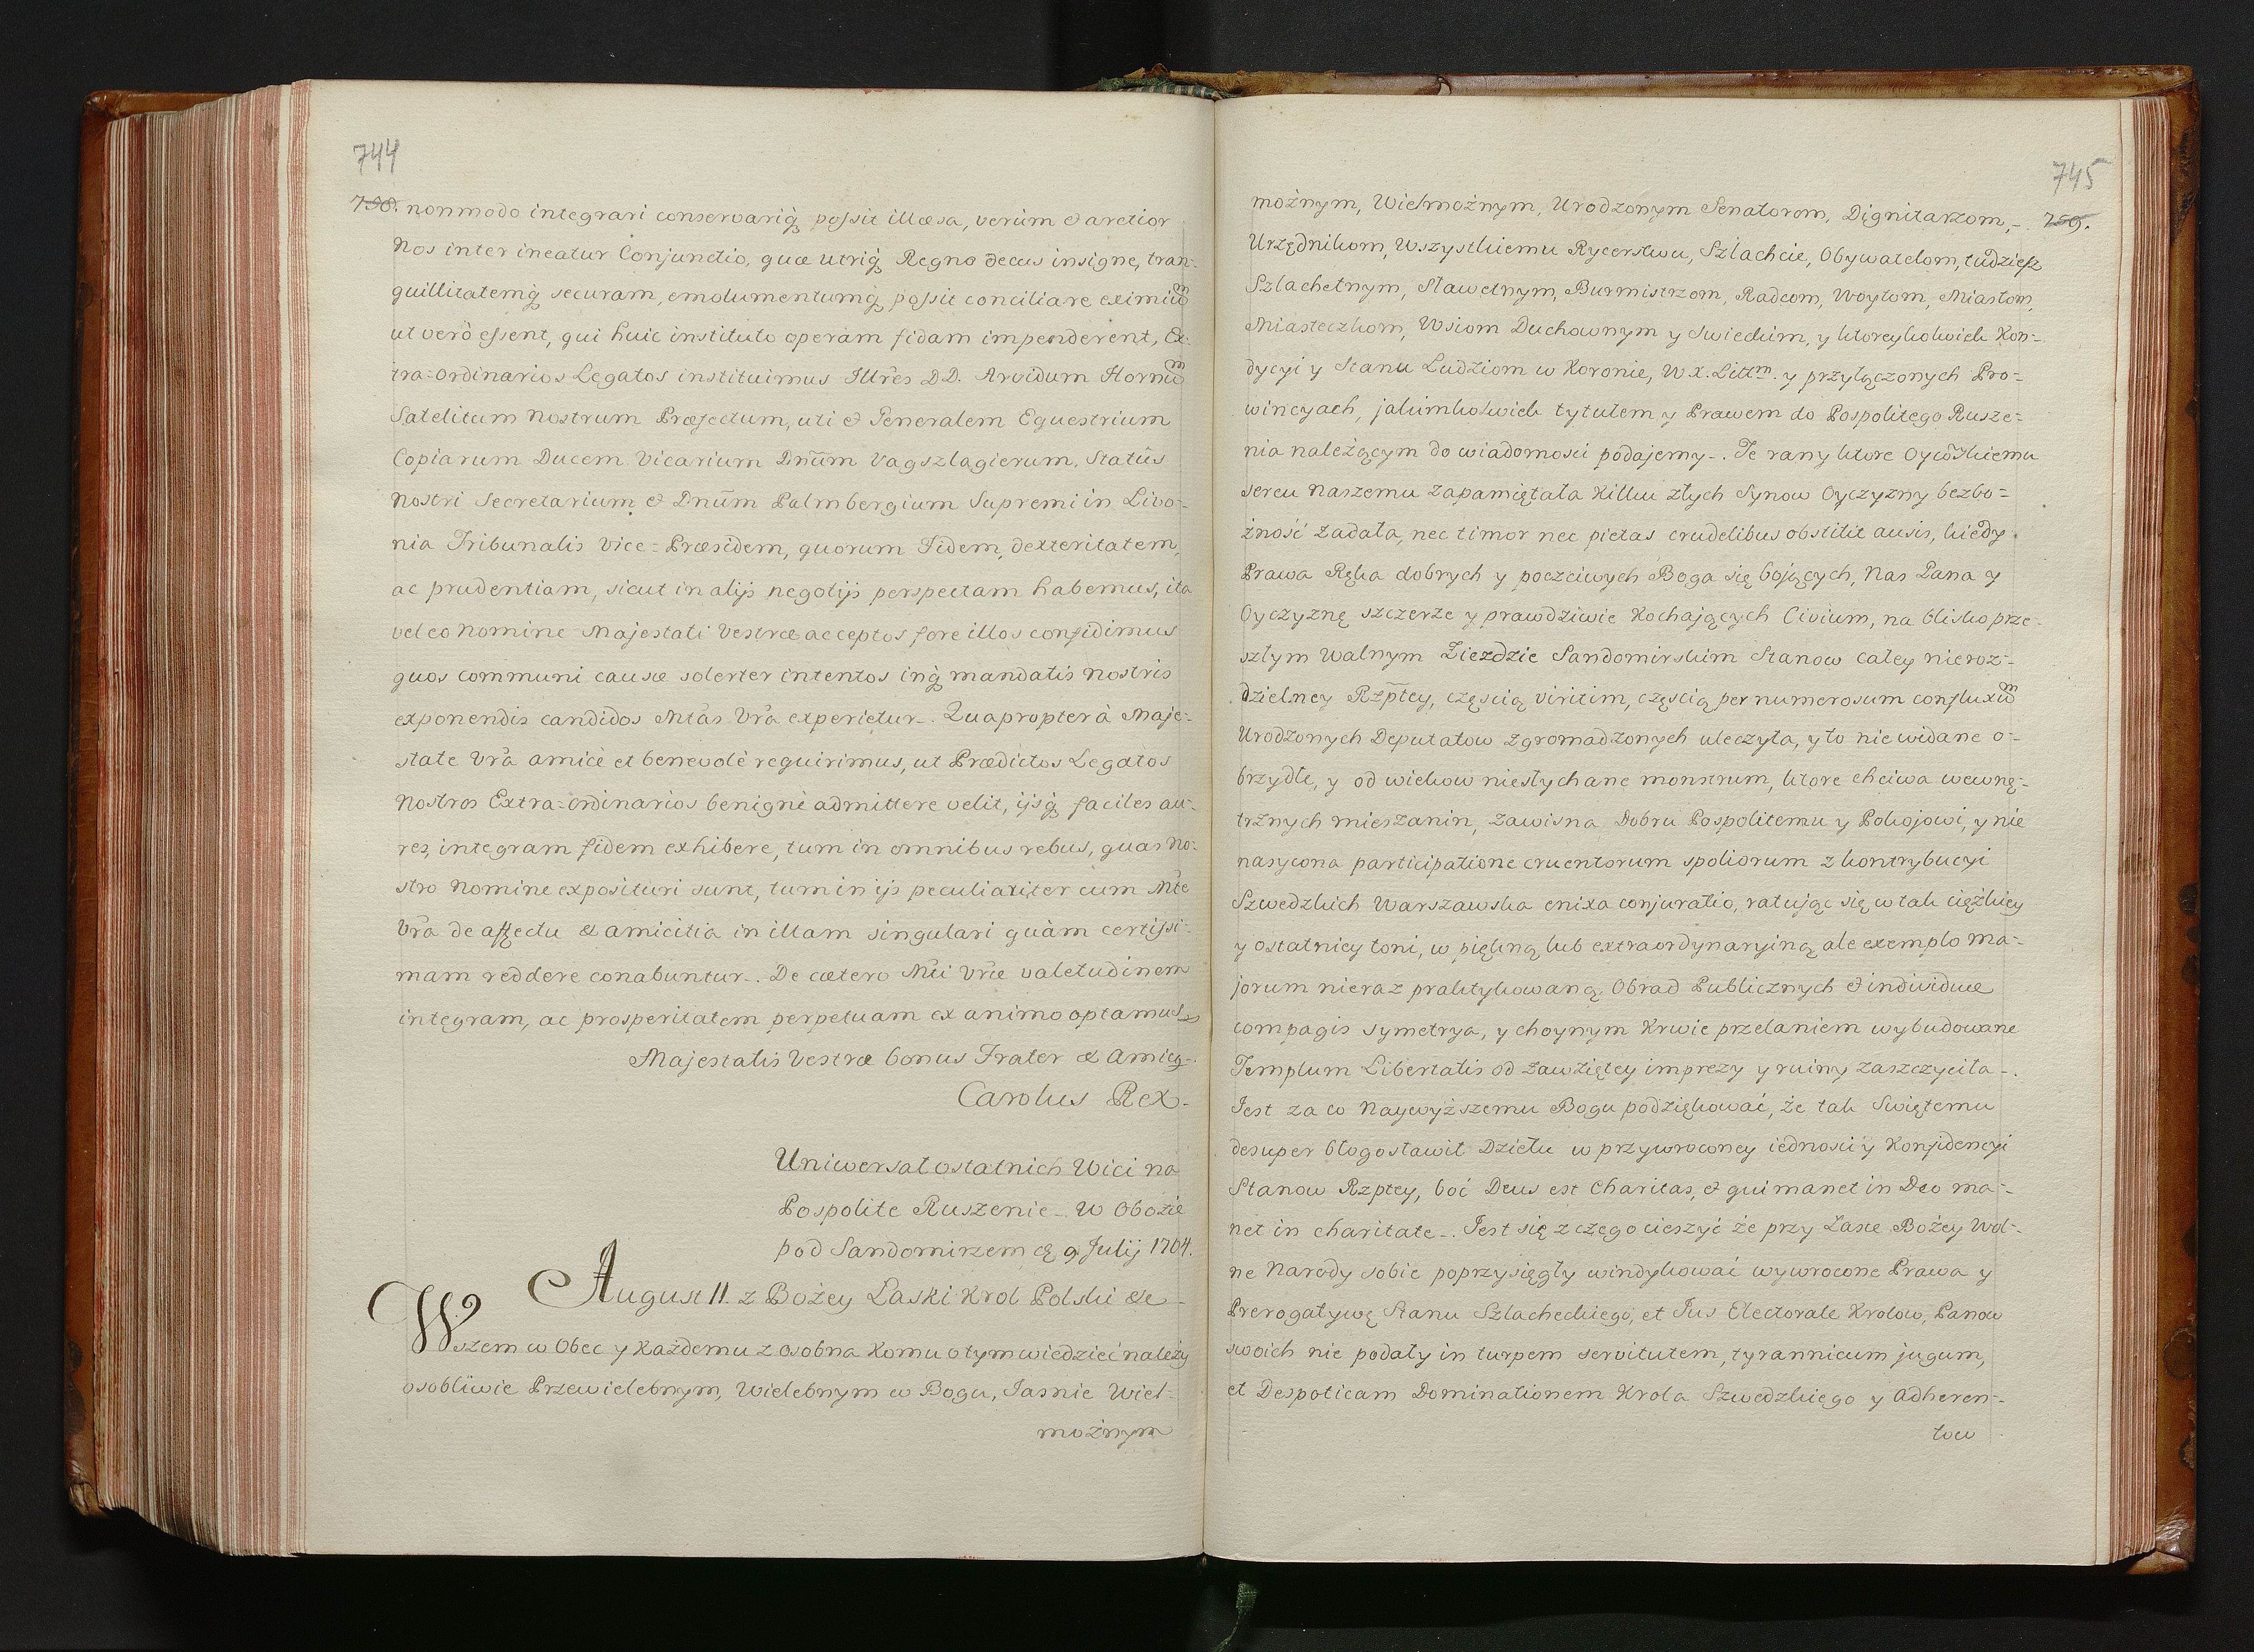 744
nonmodo integrari conservariq; possit illæsa, verùm & arctior
Nos inter ineatur Conjunctio, quæ utriq; Regno decus insigne, tran=
quillitatemq; securam, emolumentumq; possit conciliare eximiũ
ut verò essent, qui huic instituto operam fidam impenderent, Ex=
tra=ordinarios Legatos instituimus Illres DD. Arvidum Hornũ
Satelitum Nostrum Præfectum, uti & Generalem Equestrium
Copiarum Ducem Vicarium Dnũm Vagszlagierum, Statûs
Nostri Secretarium & Dnũm Palmbergium Supremi in Livo=
nia Tribunalis Vice=Præsidem, quorum Fidem, dexteritatem,
ac prudentiam, sicut in alijs negotijs perspectam habemus, ita
vel eo Nomine Majestati Vestræ acceptos fore illos confidimus
quos communi causæ solerter intentos inq; mandatis Nostris
exponendis candidos Mtas Vra experietur. Quapropter à Maje=
state Vra amicè et benevolè requirimus, ut Prædictos Legatos
Nostros Extra=Ordinarios benignè admittere velit, ijsq; faciles au=
res, integram fidem exhibere, tum in omnibus rebus, quas No=
stro Nomine exposituri sunt, tum in ijs peculiariter cum Mte
Vra de affectu & amicitia in illam singulari quàm certissi=
mam reddere conabuntur. De cætero Mti Vræ valetudinem
integram, ac prosperitatem perpetuam ex animo optamus
Majestatis Vestræ bonus Frater & Amicq
Carolus Rex
Uniwersał ostatnich Wici na
Pospolite Ruszenie w Obozie
pod Sandomirzem 9 Julij 1704.
August II. z Bożey Łaski Krol Polski &c
Wszem w Obec y Każdemu z osobna Komu o tym wiedzieć należy
osobliwie Przewielebnym, Wielebnym w Bogu, Jasnie Wiel=
możnym
745
możnym, Wielmożnym, Urodzonym Senatorom, Dignitarzom, 759.
Urzędnikom, Wszystkiemu Rycerstwu, Szlachcie, Obywatelom, tudziesz
Szlachetnym, Sławetnym, Burmistrzom, Radcom, Woytom, Miastom,
Miasteczkom, Wsiom Duchownym y Swieckim, y ktoreykolwiek Kon=
dycyi y Stanu Ludziom w Koronie, W.X.Littm. y przyłączonych Pro=
wincyach, jakimkolwiek tytułem y Prawem do Pospolitego Rusze=
nia należącym do wiadomości podajemy. Te rany ktore Oycowskiemu
sercu Naszemu zapamiętała Kilku złych Synow Oyczyzny bezbo=
żność zadała, nec timor nec pietas crudelibus obstitit ausis, kiedy
Prawa Ręka dobrych y poczciwych Boga się bojących, Nas Pana y
Oyczyznę szczerze y prawdziwie Kochających Civium, na blisko prze=
szłym Walnym Zieździe Sandomirskim Stanow całey nieroz=
dzielney Rzptey, częścią viritim, częścią per numerosum confluxũ
Urodzonych Deputatow zgromadzonych uleczyła, y to niewidane o=
brzydłe, y od wiekow niesłychane monstrum, ktore chciwa wewnę=
trznych mieszanin, zawisna Dobru Pospolitemu y Pokojowi, y nie
nasycona participatione cruentorum spoliorum z kontrybucyi
Szwedzkich Warszawska enixa conjuratio, ratując się w tak ciężkiey
y ostatniey toni, w piękną lub extraordynaryiną ale exemplo Ma=
jorum nieraz praktykowaną Obrad Publicznych & individuæ
compagis symetrya, y choynym Krwie przelaniem wybudowane
Templum Libertatis od zawziętey imprezy y ruiny zaszczyciła.
Jest za co Naywyższemu Bogu podziękować, że tak Swiętemu
desuper błogosławił Dziełu w przywroconey iedności y Konfidencyi
Stanow Rzptey, boć Deus est Charitas, & qui manet in Deo ma=
net in charitate. Jest się z czego cieszyć że przy Łasce Bożey Wol=
ne Narody sobie poprzysięgły windykować wywrocone Prawa y
Prerogatywę Stanu Szlacheckiego, et Jus Electorale Krolow, Panow
swoich nie podały in turpem servitutem, tyrannicum jugum,
et Despoticam Dominationem Krola Szwedzkiego y Adheren=
tow